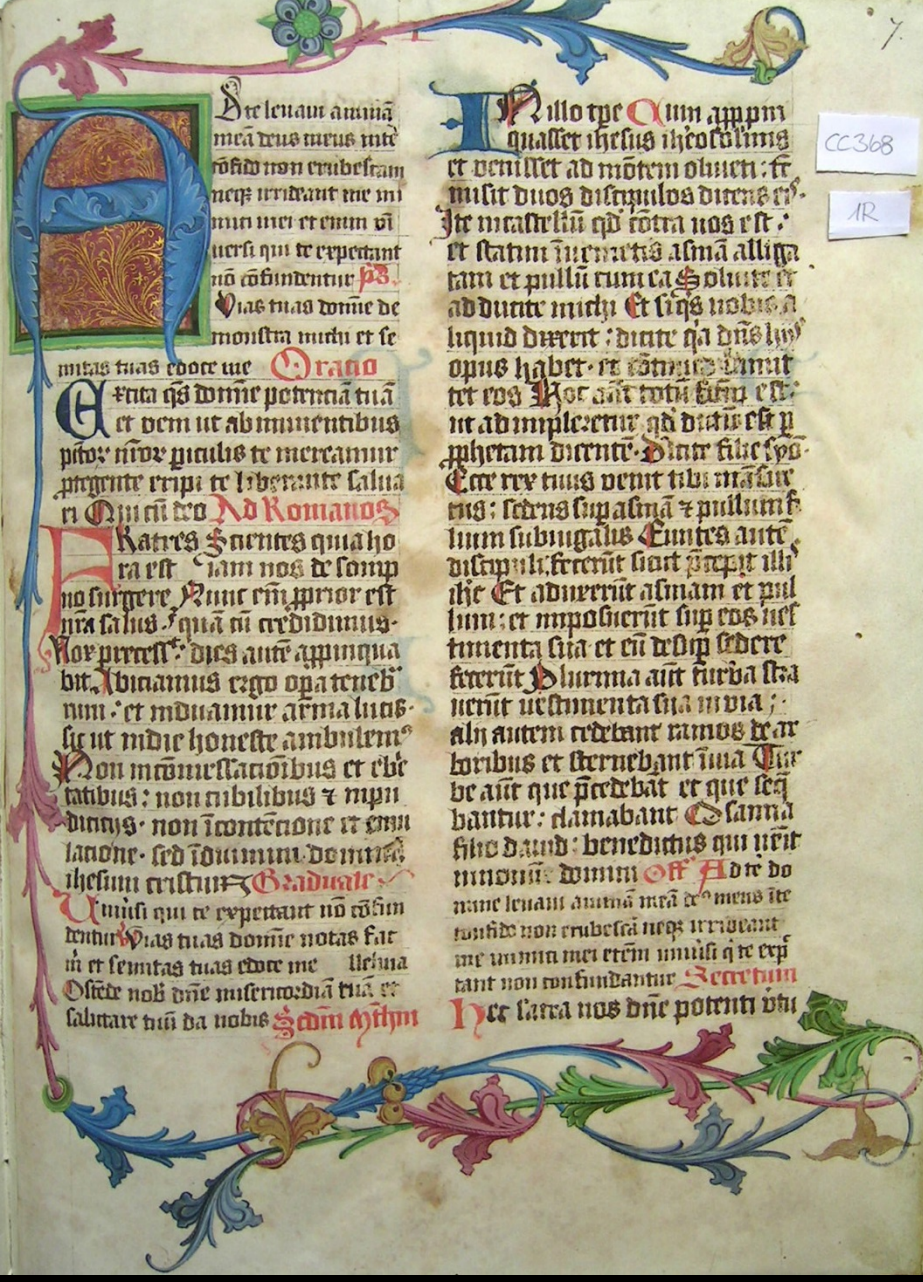 7.
CC368
1R
Ad te levavi animā
meā deus meus in te
cōfido non erubescam
neqꝫ irrideant me ini
mici mei et enim vni
uersi qui te expectant
nō cōfundentur ps.
Vias tuas domīe de
monstra michi et se
mitas tuas edoce me Oracio
Excita q̄s domīe potenciā tuā
et veni ut ab iminentibus
pctōr nr̄or piculis te mereamur
ꝓtegente eripi te liberante salua
ri Qui cū deo Ad Romanos
FRatres Scientes quia ho
ra est iam nos de somp
no surgere Nunc em̄ ꝓprior est
nr̄a salus quā cū credidimus.
Nox precess᷑: dies autē appinqua
bit Abiciamus ergo opa teneb
rum: et induamur arma lucis.
sic ut in die honeste ambulemꝰ
Non in cōmessacioībus et ebrie
tatibus: non cubilibus ⁊ inpu
diciciis. non ī contēcione et emu
lacione. sed īduimini dominū
ihesum cristum Graduale
Uniūsi qui te expectant nō cōfun
dentur Vias tuas domīe notas fac
m̄ et semitas tuas edoce me lleluia
Ostēde nob dn̄e misericordiā tuā et
salutare tuū da nobis Scdm Mathm
IN illo tpe Cum appropin
quasset ihesus iherosolimis
et venisset ad mōtem oliueti: tc̄
misit duos discipulos dicens eis.
Ite in castellū qd̄ cōtra uos est:
et statim īuenietis asinā alliga
tam et pullū cum ea Soluite et
adducite michi Et siqs uobis a
liquid dixerit: dicite qa dn̄s hijs
opus habet. et cōfestim dimit
tet eos Hoc aūt totū fcm̄ est:
ut adimpleretur qd̄ dictū est p
ꝓphetam dicentē. Dicite filie syō.
Ecce rex tuus venit tibi māsue
tus: sedens sup asinā ⁊ pullum fi
lium subiugalis Euntes autē
discipuli fecerūt sicut p̄cepit illis
ihc Et adduxerūt asinam et pul
lum: et imposuerūt sup eos ues
timenta sua et eū desup sedere
fecerūt Plurima aūt turba stra
uerūt uestimenta sua in via;
alij autem cedebant ramos de ar
boribus et sternebant ī uia Tur
be aūt que p̄cedebāt et que seq
bantur: clamabant Osanna
filio dauid: benedictus qui uēit
in nomīe domini Off Ad te do
mine leuaui animā meā deꝰ meus ī te
confido non erubescā neqꝫ irrideant
me inimici mei etēm uniūsi q̇ te exp̄
tant non confundantur Secretum
Hec sacra nos dn̄e potenti v̇tu